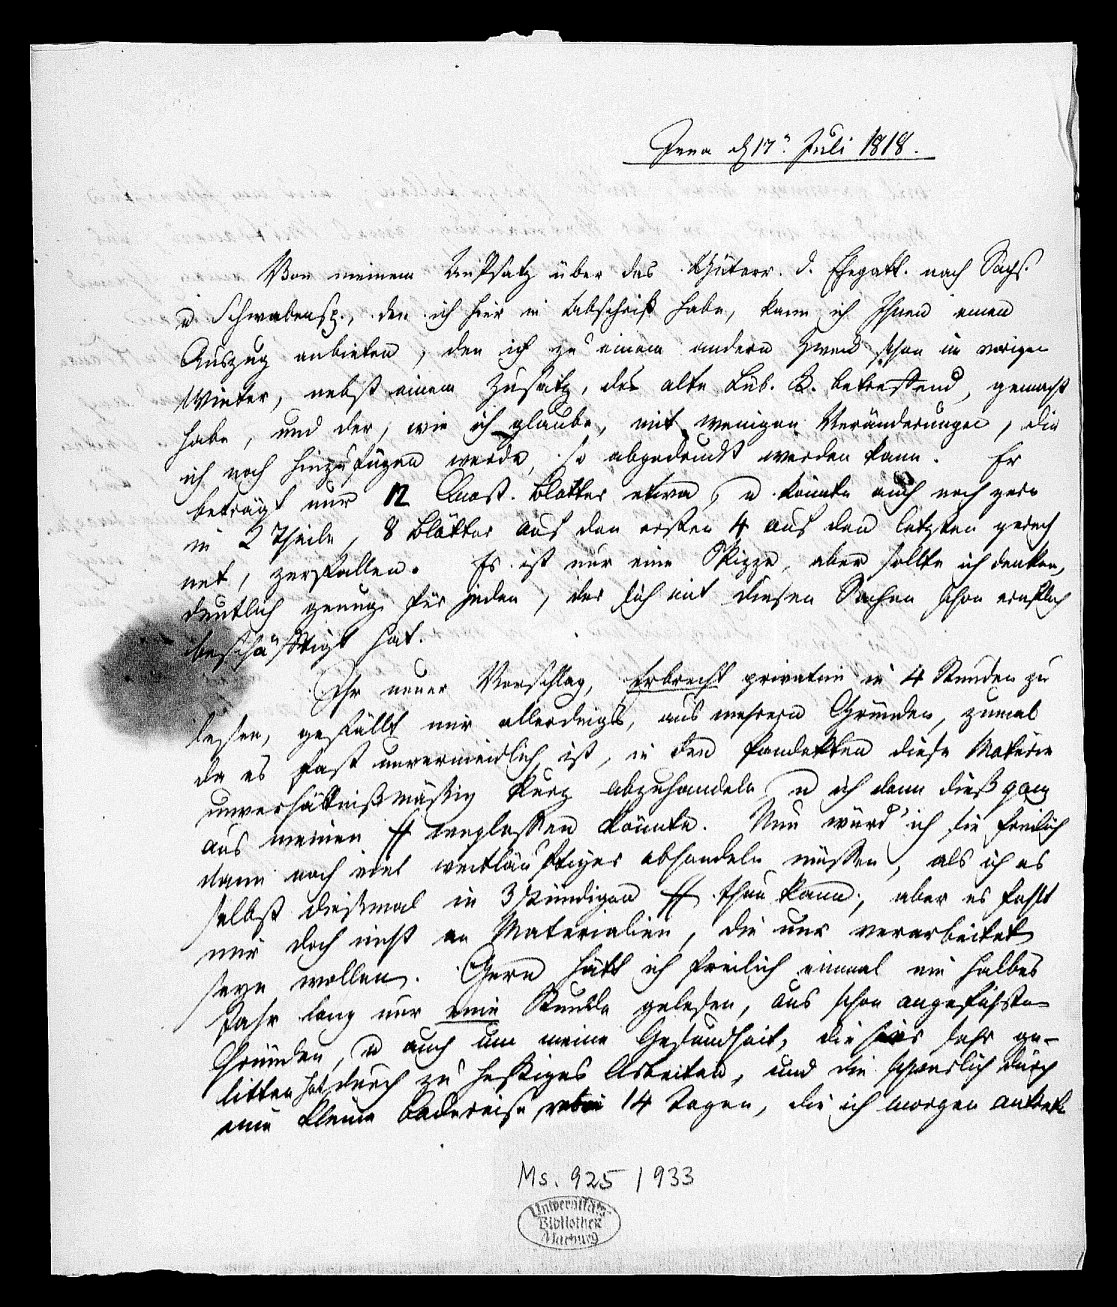 Jena d 17n. Juli 1818.
Von meinem Aufsatz über das Güterr. d. Ehegatt. nach Sachs.
u Schwabensp., den ich hier in Abschrift habe, kann ich Ihnen einen
Auszug anbieten, den ich zu einem andern Zweck schon im vorigen
Winter, nebst einem Zusatz, das alte Lüb. R. betreffend, gemacht
habe, und der, wie ich glaube, mit wenigen Veränderungen, die
ich noch hinzufügen werde, so abgedruckt werden kann. Er
beträgt nur 12 Quart. Blätter etwa, u. könnte auch noch gern
in 2 Theile, 8 Blätter auf den ersten 4 auf den letzten gerech
net, zerfallen. Es ist nur eine Skizze, aber sollte ich denken,
deutlich genug für jeden, der sich mit diesen Sachen schon ernstlich
beschäftigt hat.
Ihr neuer Vorschlag, Erbrecht privatim in 4 Stunden zu
lesen, gefällt mir allerdings, aus mehrern Gründen, zumal
da es fast unvermeidlich ist, in den Pandekten diese Materie
unverhältnißmäßig kurz abzuhandeln u ich dann dieß ganz
aus meinen ff weglassen könnte. Nun würd' ich sie freilich
dann noch viel weitläuftiger abhandeln müssen, als ich es
selbst dießmal in 3stündigen ff thun kann, aber es fehlt
mir doch nicht an Materialien, die nur verarbeitet
seyn wollen. Gern hätt ich freilich einmal ein halbes
Jahr lang nur eine Stunde gelesen, aus schon angeführten
Gründen, u auch um meine Gesundheit, die hier sehr ge-
litten hat durch zu heftiges Arbeiten, und die schwerlich durch
eine kleine Badereise von 14 Tagen, die ich morgen antrete
Ms. 925/933
Universitäts
Bibliothek
Marburg